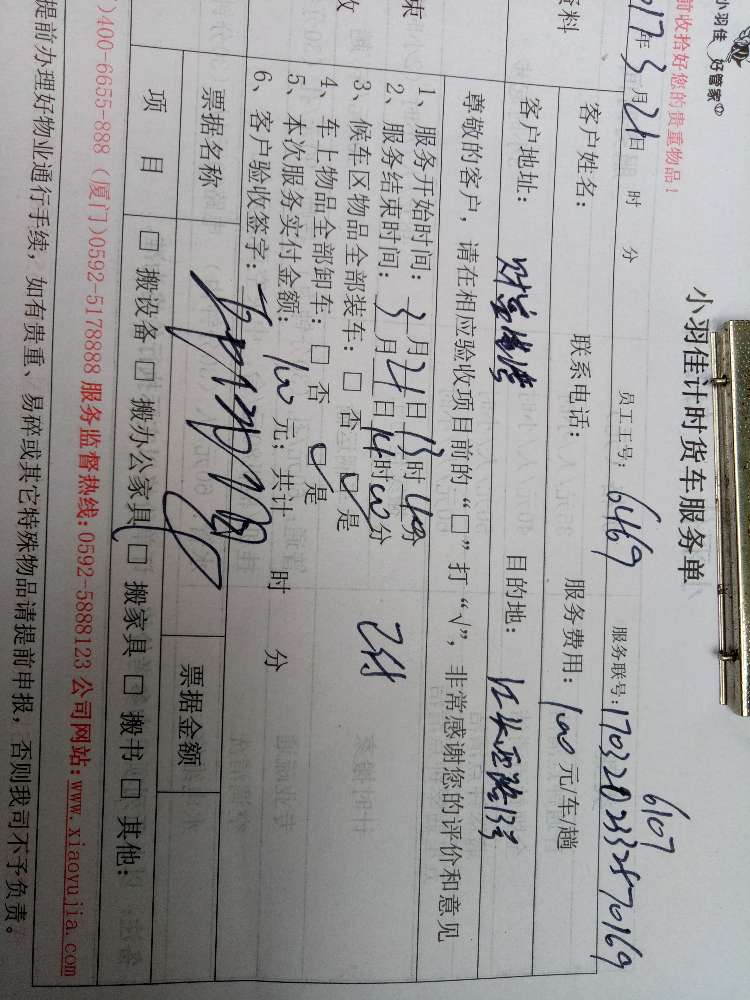 小羽佳
好管家
前收拾好您的贵重物品！
小羽佳计时货车服务单
6107
17年3月21日 时 分 员工工号：6469 服务联号：1703202332870169
资料 客户姓名： 联系电话： 服务费用：100元/车/趟
客户地址： 目的地：
尊敬的客户，请在相应验收项目前的“□”打“√”，非常感谢您的评价和意见
1、服务开始时间：3月21日13时40分
束 2、服务结束时间：月 日14时00分
3、候车区物品全部装车：□ 否 □ 是
收 4、车上物品全部卸车：□ 否 □ 是
5、本次服务实付金额：100元；共计 时 分
6、客户验收签字：
票据名称 票据金额
项 目 □ 搬设备 □ 搬办公家具 □ 搬家具 □ 搬书 □ 其他：
)400-6655-888（厦门)0592-5178888 服务监督热线:0592-5888123 公司网站:www.xiaoyujia.com
提前办理好物业通行手续，如有贵重、易碎或其它特殊物品请提前申报，否则我司不予负责。